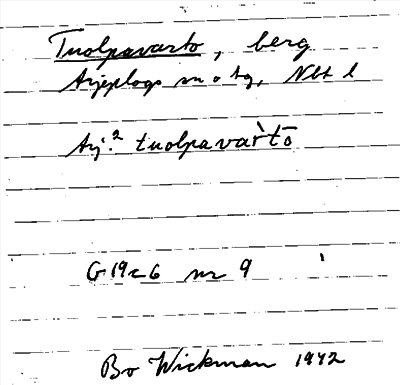 Tuolpavarto, berg
Arjeplogs sn o tg, Nbt l
Arj.² tuolpavàrtō
G 19 c 6 nr 9
Bo Wickman 1942